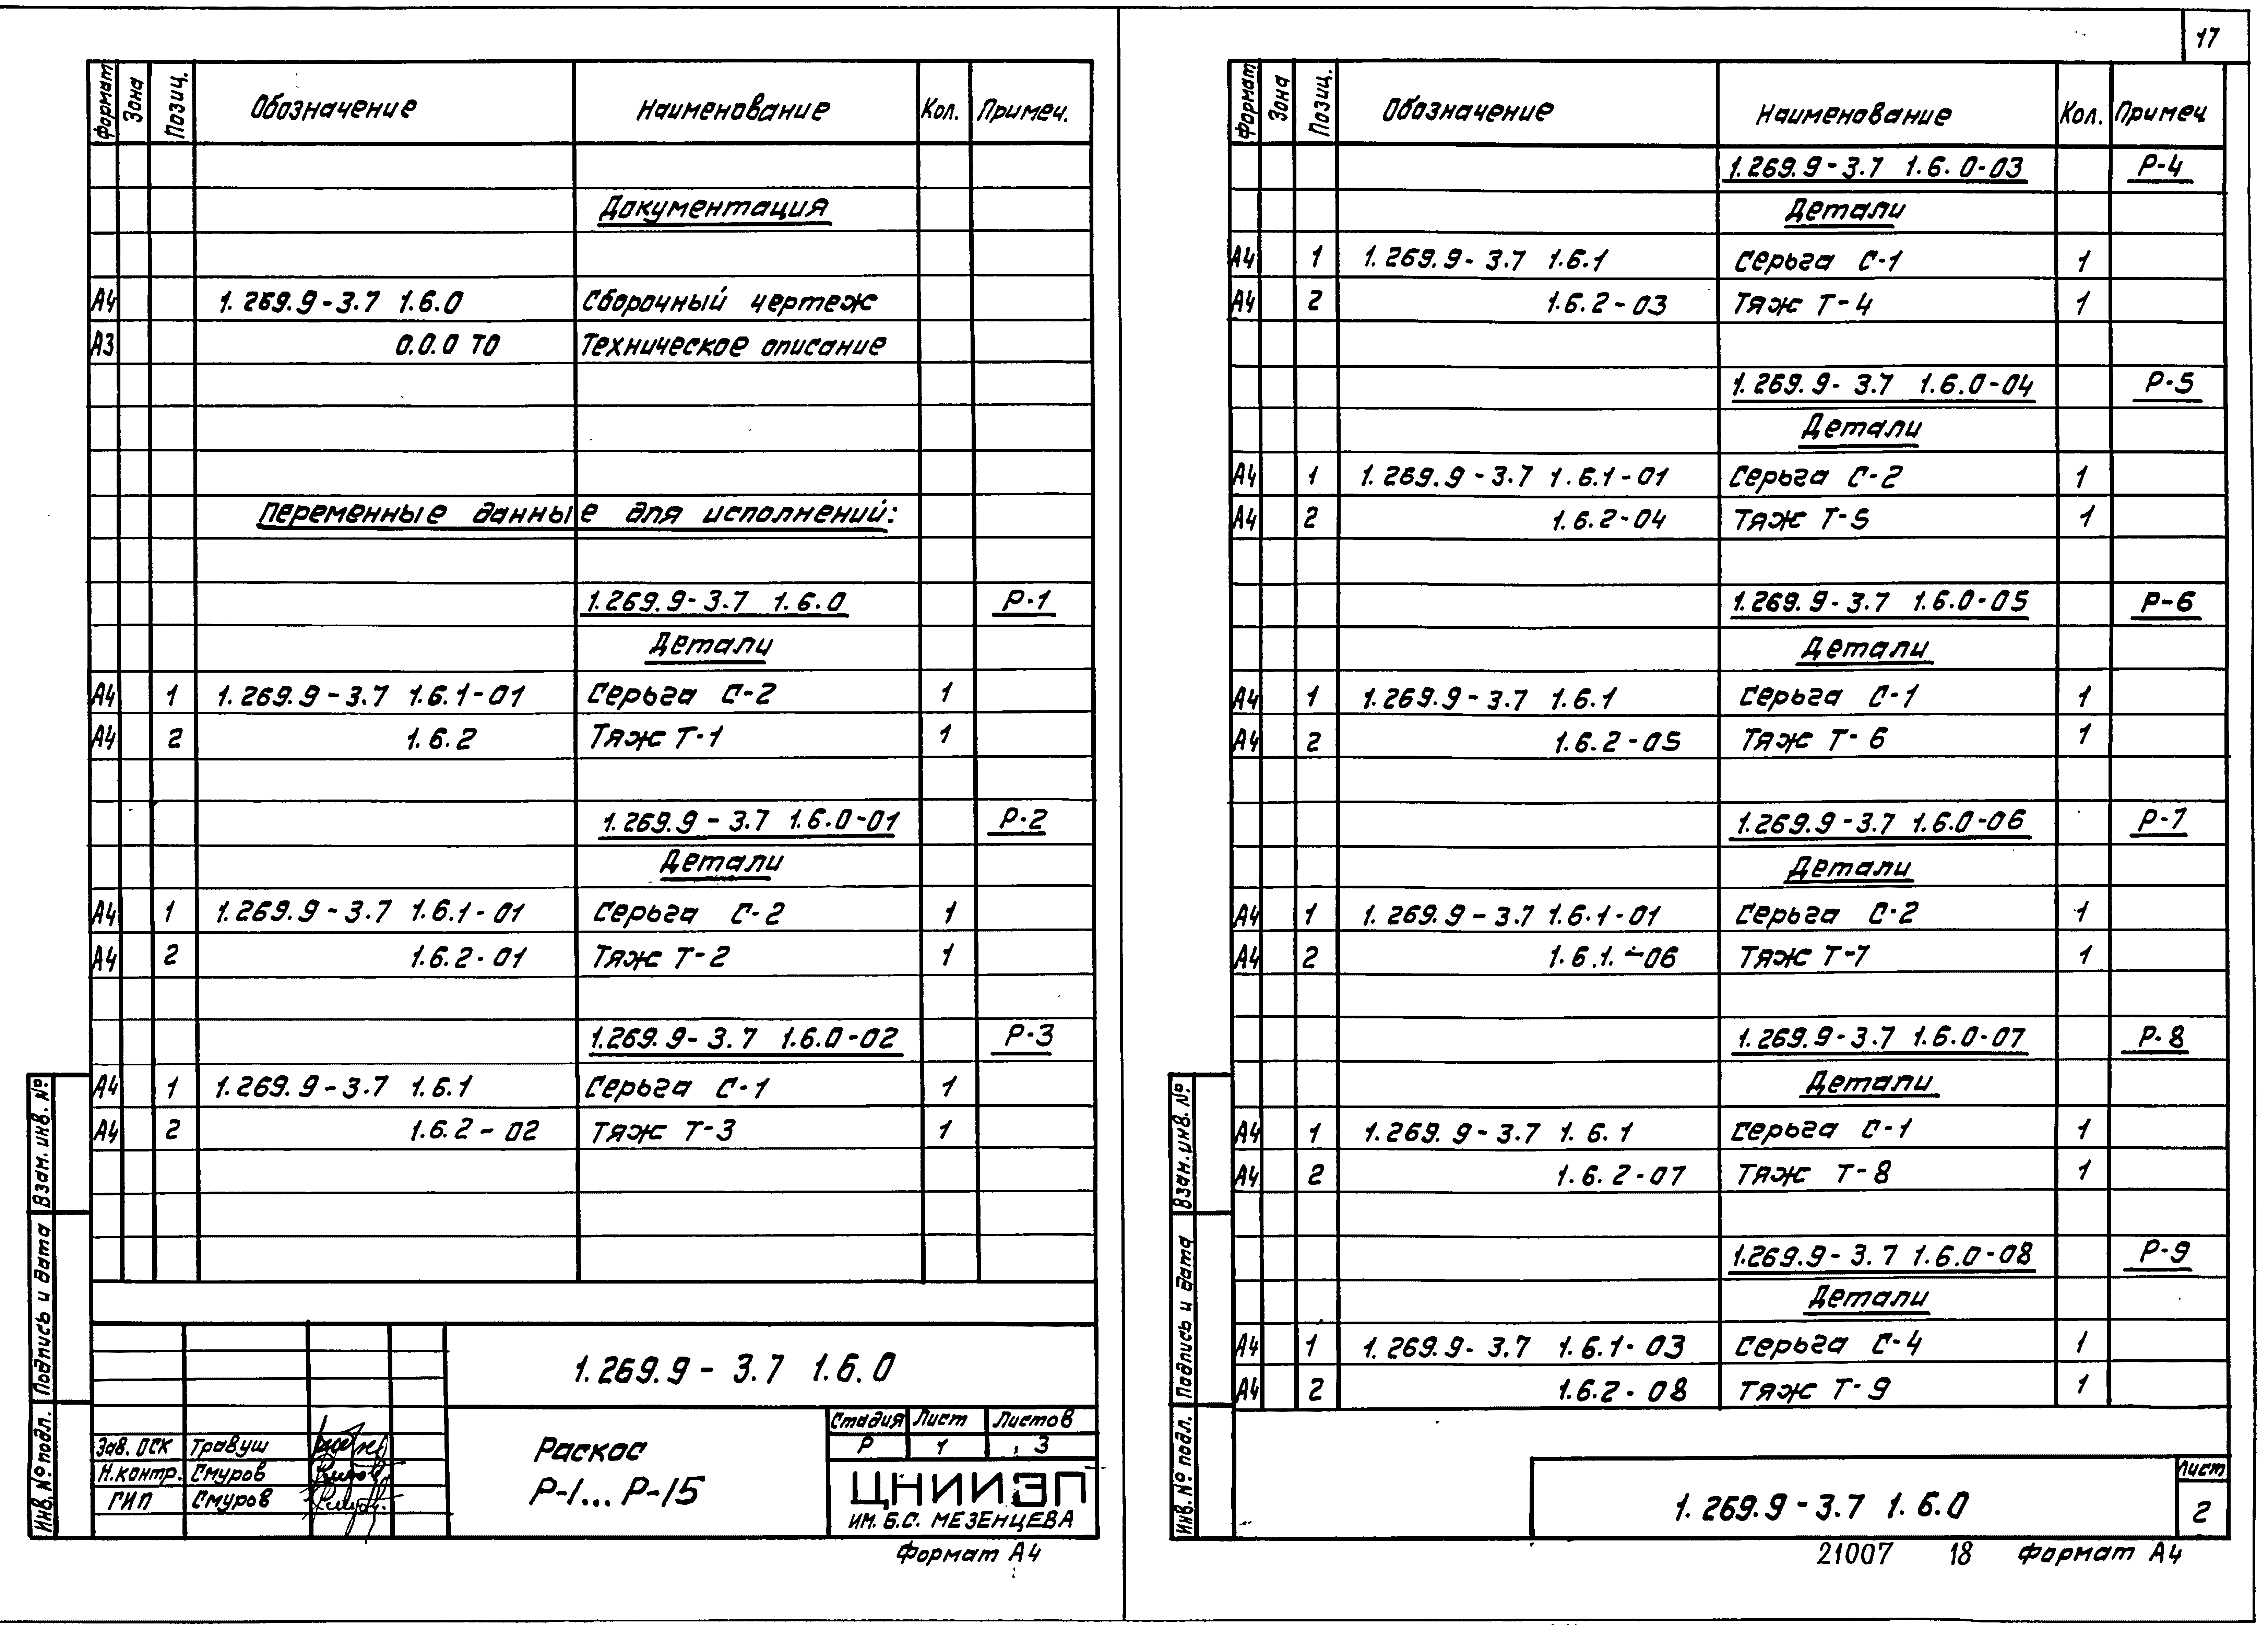 Формат Зона Позиц. Обозначение Наименование Кол. Примеч.
Документация
А4 1.269.9-3.7 1.6.0 Сборочный чертеж
А3 0.0.0 ТО Техническое описание
Переменные данные для исполнений:
1.269.9-3.7 1.6.0 Р-1
Детали
А4 1 1.269.9-3.7 1.6.1-01 Серьга С-2 1
А4 2 1.6.2 Тяж Т-1 1
1.269.9-3.7 1.6.0-01 Р-2
Детали
А4 1 1.269.9-3.7 1.6.1-01 Серьга С-2 1
А4 2 1.6.2-01 Тяж Т-2 1
1.269.9-3.7 1.6.0-02 Р-3
А4 1 1.269.9-3.7 1.6.1 Серьга С-1 1
А4 2 1.6.2-02 Тяж Т-3 1
Инв. № подл. Подпись и дата Взам. инв. №:
1.269.9-3.7 1.6.0
Зав. ОСК Травуш
Н.контр. Смуров
ГИП Смуров
Раскос
Р-1... Р-15
Стадия Лист Листов
Р 1 3
ЦНИИЭП
ИМ. Б.С. МЕЗЕНЦЕВА
Формат А4
17
Формат Зона Позиц. Обозначение Наименование Кол. Примеч
1.269.9-3.7 1.6.0-03 Р-4
Детали
А4 1 1.269.9-3.7 1.6.1 Серьга С-1 1
А4 2 1.6.2-03 Тяж Т-4 1
1.269.9-3.7 1.6.0-04 Р-5
Детали
А4 1 1.269.9-3.7 1.6.1-01 Серьга С-2 1
А4 2 1.6.2-04 Тяж Т-5 1
1.269.9-3.7 1.6.0-05 Р-6
Детали
А4 1 1.269.9-3.7 1.6.1 Серьга С-1 1
А4 2 1.6.2-05 Тяж Т-6 1
1.269.9-3.7 1.6.0-06 Р-7
Детали
А4 1 1.269.9-3.7 1.6.1-01 Серьга С-2 1
А4 2 1.6.1.-06 Тяж Т-7 1
1.269.9-3.7 1.6.0-07 Р-8
Детали
А4 1 1.269.9-3.7 1.6.1 Серьга С-1 1
А4 2 1.6.2-07 Тяж Т-8 1
1.269.9-3.7 1.6.0-08 Р-9
Детали
А4 1 1.269.9-3.7 1.6.1-03 Серьга С-4 1
А4 2 1.6.2-08 Тяж Т-9 1
Инв. № подл. Подпись и дата Взам. инв. №:
1.269.9-3.7 1.6.0
Лист
2
21007 18 Формат А4